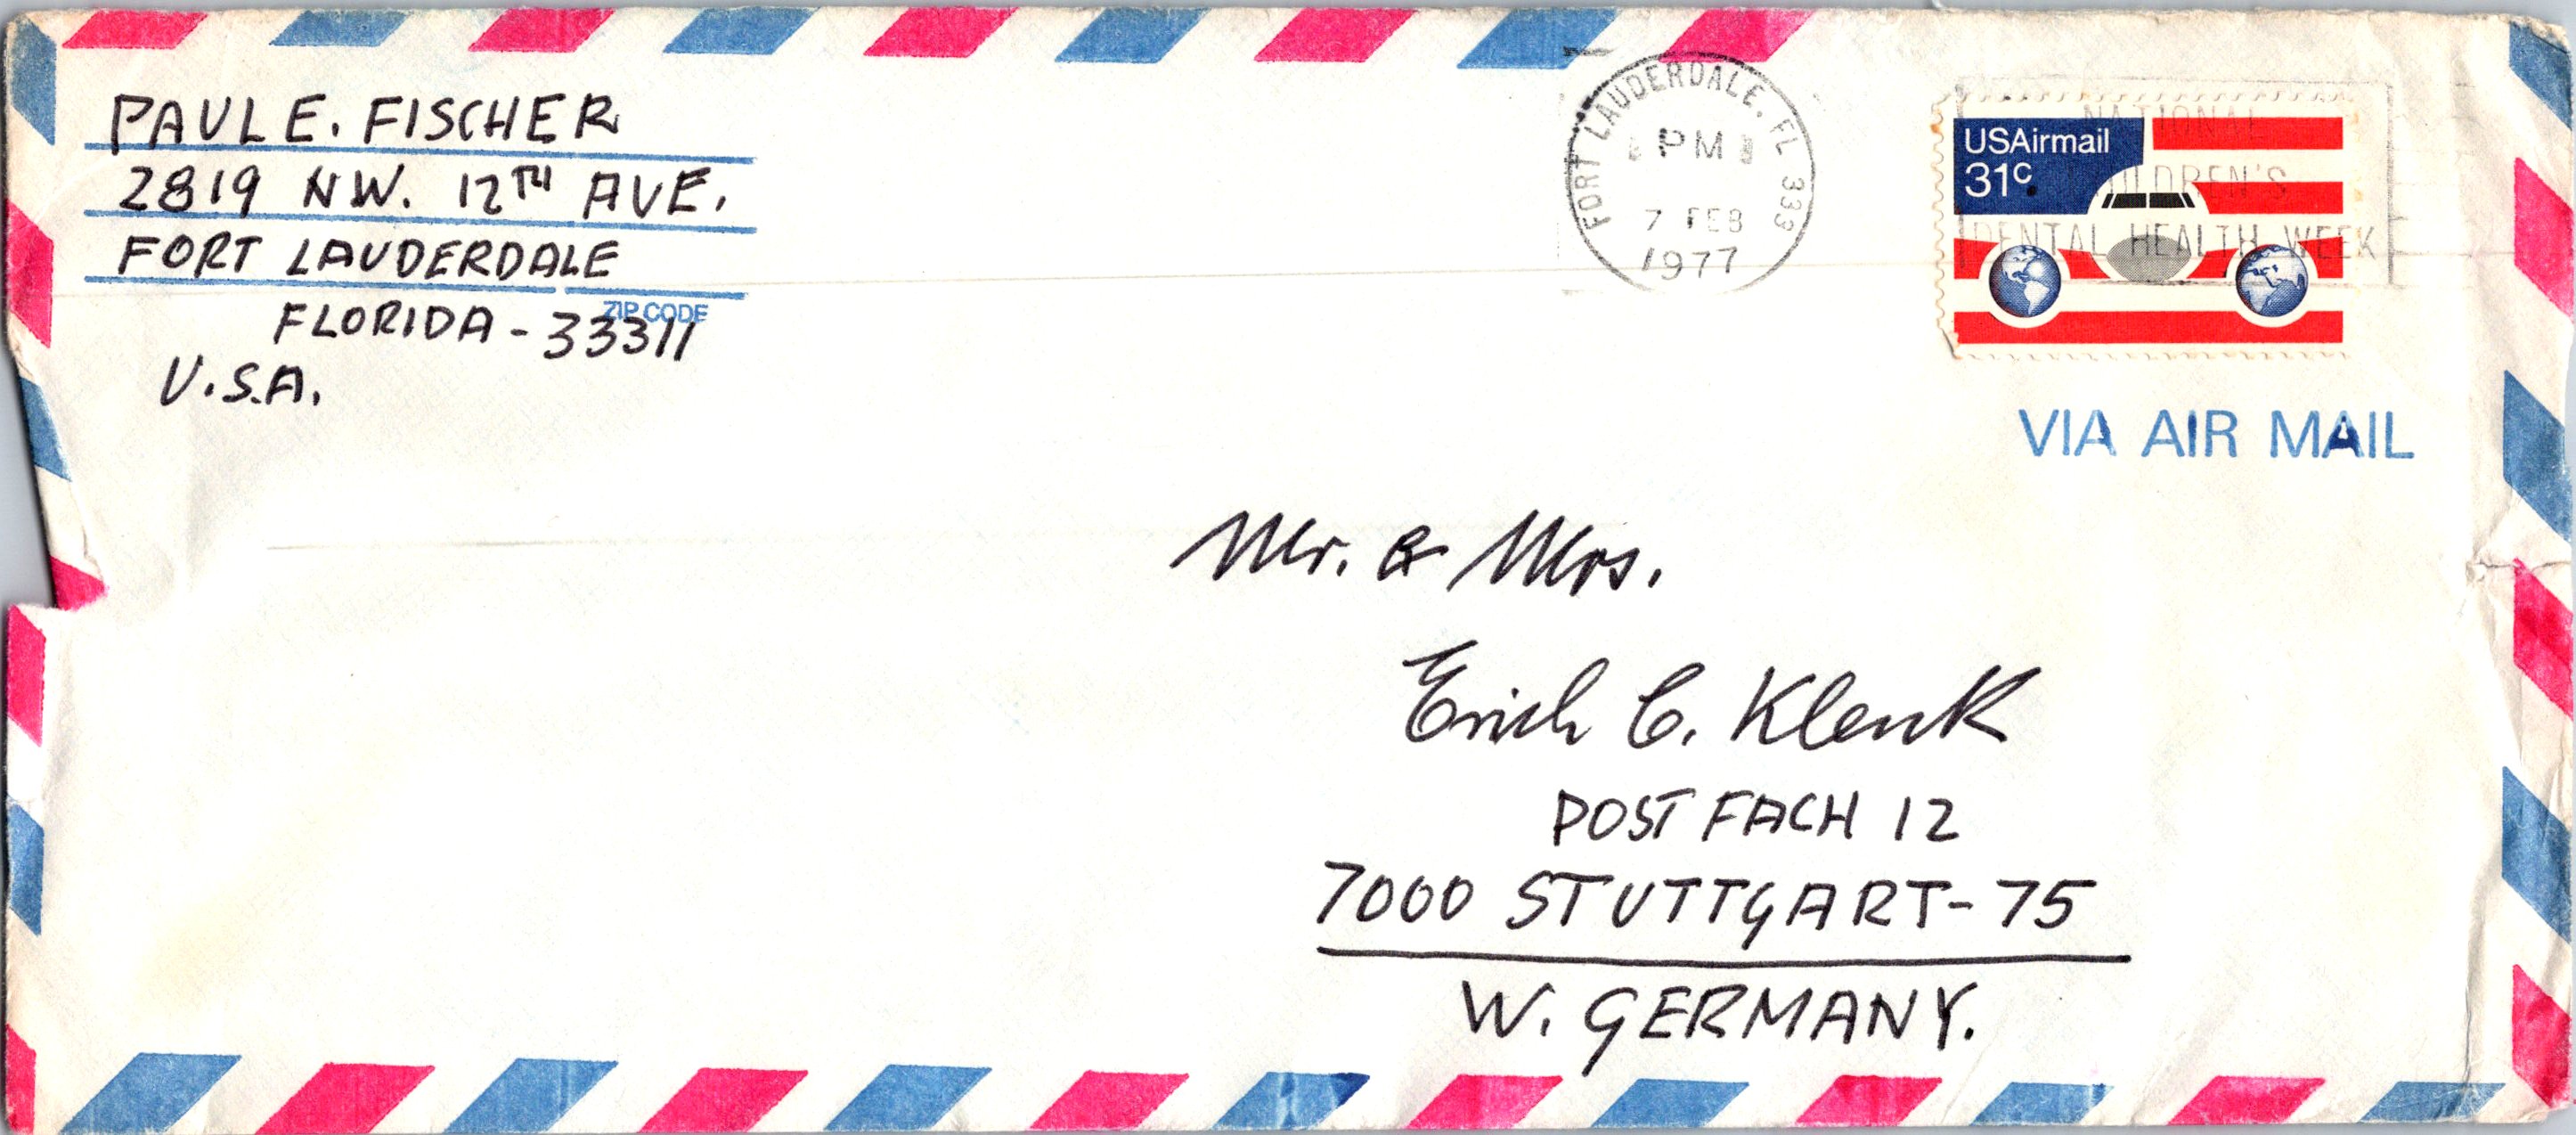 PAUL E. FISCHER
2819 NW. 12TH AVE.
FORT LAUDERDALE
ZIP CODE
FLORIDA - 33311
U.S.A.
FORT LAUDERDALE, FL 333
PM
7 FEB
1977
USAirmail
31c
NATIONAL
CHILDREN'S
DENTAL HEALTH WEEK
VIA AIR MAIL
Mr. & Mrs.
Erich C. Klenk
POST FACH 12
7000 STUTTGART-75
W. GERMANY.